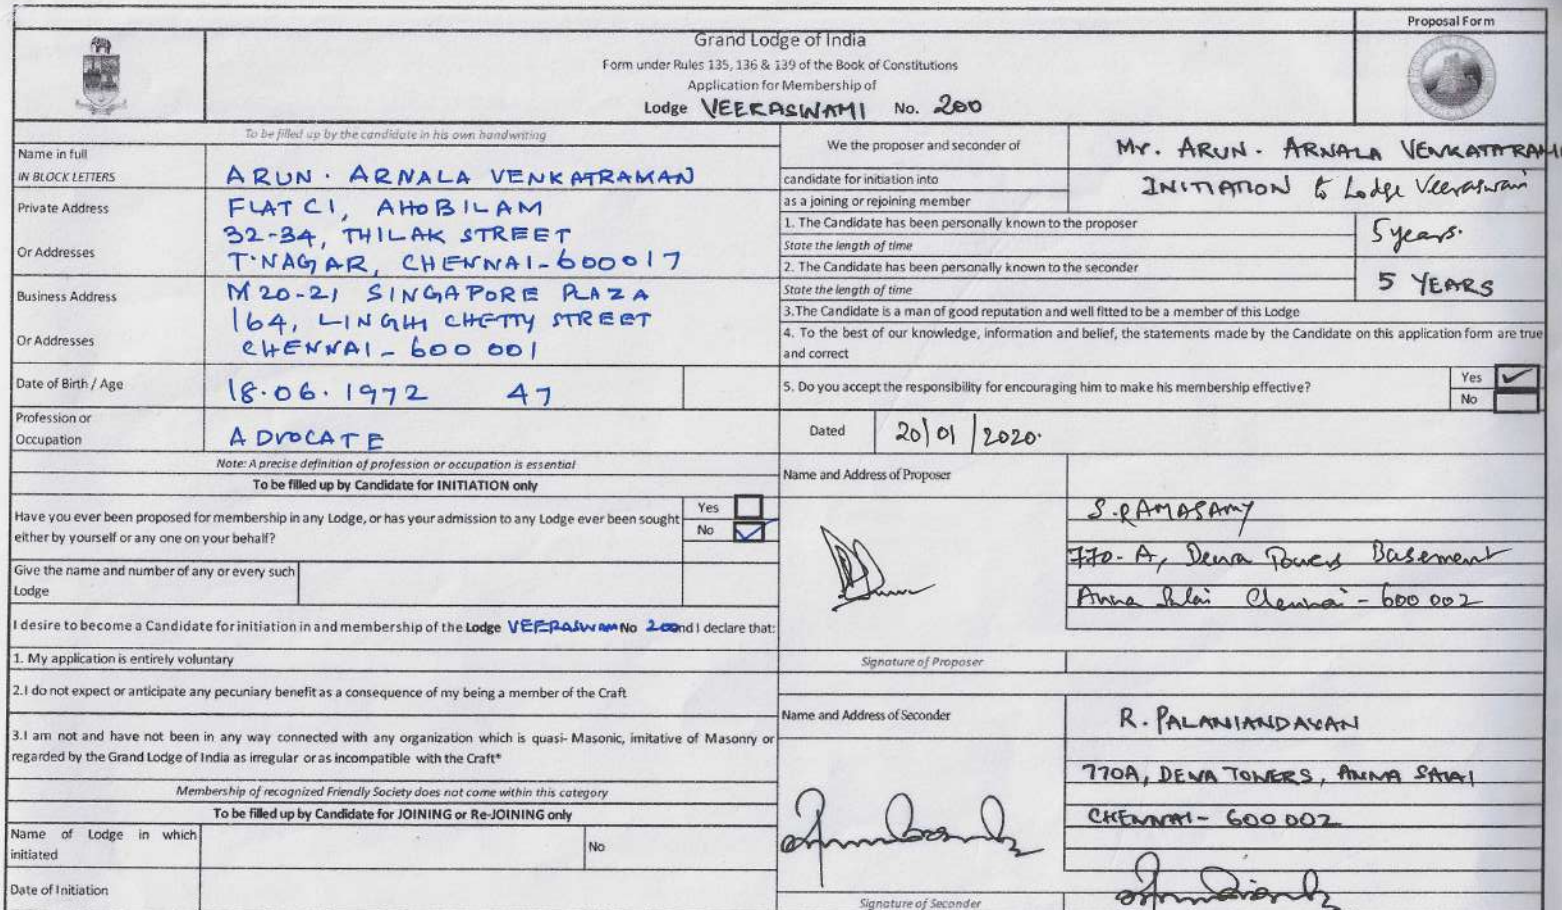 Proposal Form
Grand Lodge of India
Form under Rules 135, 136 & 139 of the Book of Constitutions
Application for Membership of
Lodge VEERASWAMI No. 200
To be filled up by the candidate in his own handwriting
Name in full
IN BLOCK LETTERS
ARUN. ARNALA VENKATRAMAN
Private Address
Or Addresses
FLAT C1, AHOBILAM
32-34, THILAK STREET
T.NAGAR, CHENNAI-600017
Business Address
Or Addresses
M20-21 SINGAPORE PLAZA
164, LINGHI CHETTY STREET
CHENNAI-600 001
Date of Birth / Age
18.06.1972 47
Profession or
Occupation
ADVOCATE
Note: A precise definition of profession or occupation is essential
To be filled up by Candidate for INITIATION only
Have you ever been proposed for membership in any Lodge, or has your admission to any Lodge ever been sought
either by yourself or any one on your behalf?
Yes
No
Give the name and number of any or every such
Lodge
I desire to become a Candidate for initiation in and membership of the Lodge VEERASWAMI No 200nd I declare that:
1. My application is entirely voluntary
2.I do not expect or anticipate any pecuniary benefit as a consequence of my being a member of the Craft
3.I am not and have not been in any way connected with any organization which is quasi- Masonic, imitative of Masonry or
regarded by the Grand Lodge of India as irregular or as incompatible with the Craft*
Membership of recognized Friendly Society does not come within this category
To be filled up by Candidate for JOINING or Re-JOINING only
Name of Lodge in which
initiated
No
Date of Initiation
We the proposer and seconder of
Mr. ARUN. ARNALA VENKATARAM
candidate for initiation into
INITIATION to Lodge Veeraswami
as a joining or rejoining member
1. The Candidate has been personally known to the proposer
State the length of time
5 years.
2. The Candidate has been personally known to the seconder
State the length of time
5 YEARS
3.The Candidate is a man of good reputation and well fitted to be a member of this Lodge
4. To the best of our knowledge, information and belief, the statements made by the Candidate on this application form are true
and correct
5. Do you accept the responsibility for encouraging him to make his membership effective?
Yes
No
Dated 20/01/2020.
Name and Address of Proposer
S. RAMASAMY
770-A, Dewa Towers Basement
Anna Salai Chennai - 600 002
Signature of Proposer
Name and Address of Seconder
R. PALANIANDAVAN
770A, DEWA TOWERS, ANNA SALAI
CHENNAI- 600 002
Signature of Seconder